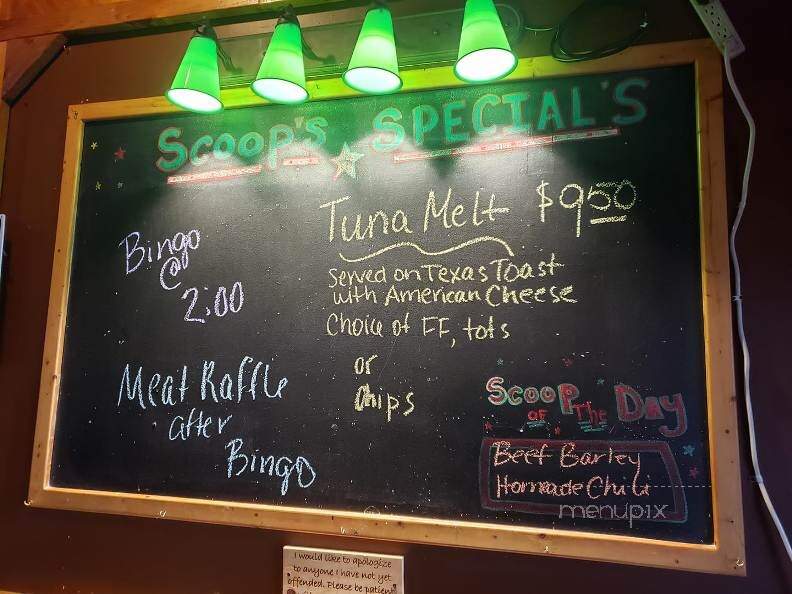 SCOOP'S SPECIAL'S
Bingo
@
2:00
Meat Raffle
after
Bingo
Tuna Melt $9.50
Served on Texas Toast
with American Cheese
Choice of FF, tots
or
Chips
SCOOP OF The DAY
Beef Barley
Homeade Chili
menupix
I would like to apologize
to anyone I have not yet
offended. Please be patient